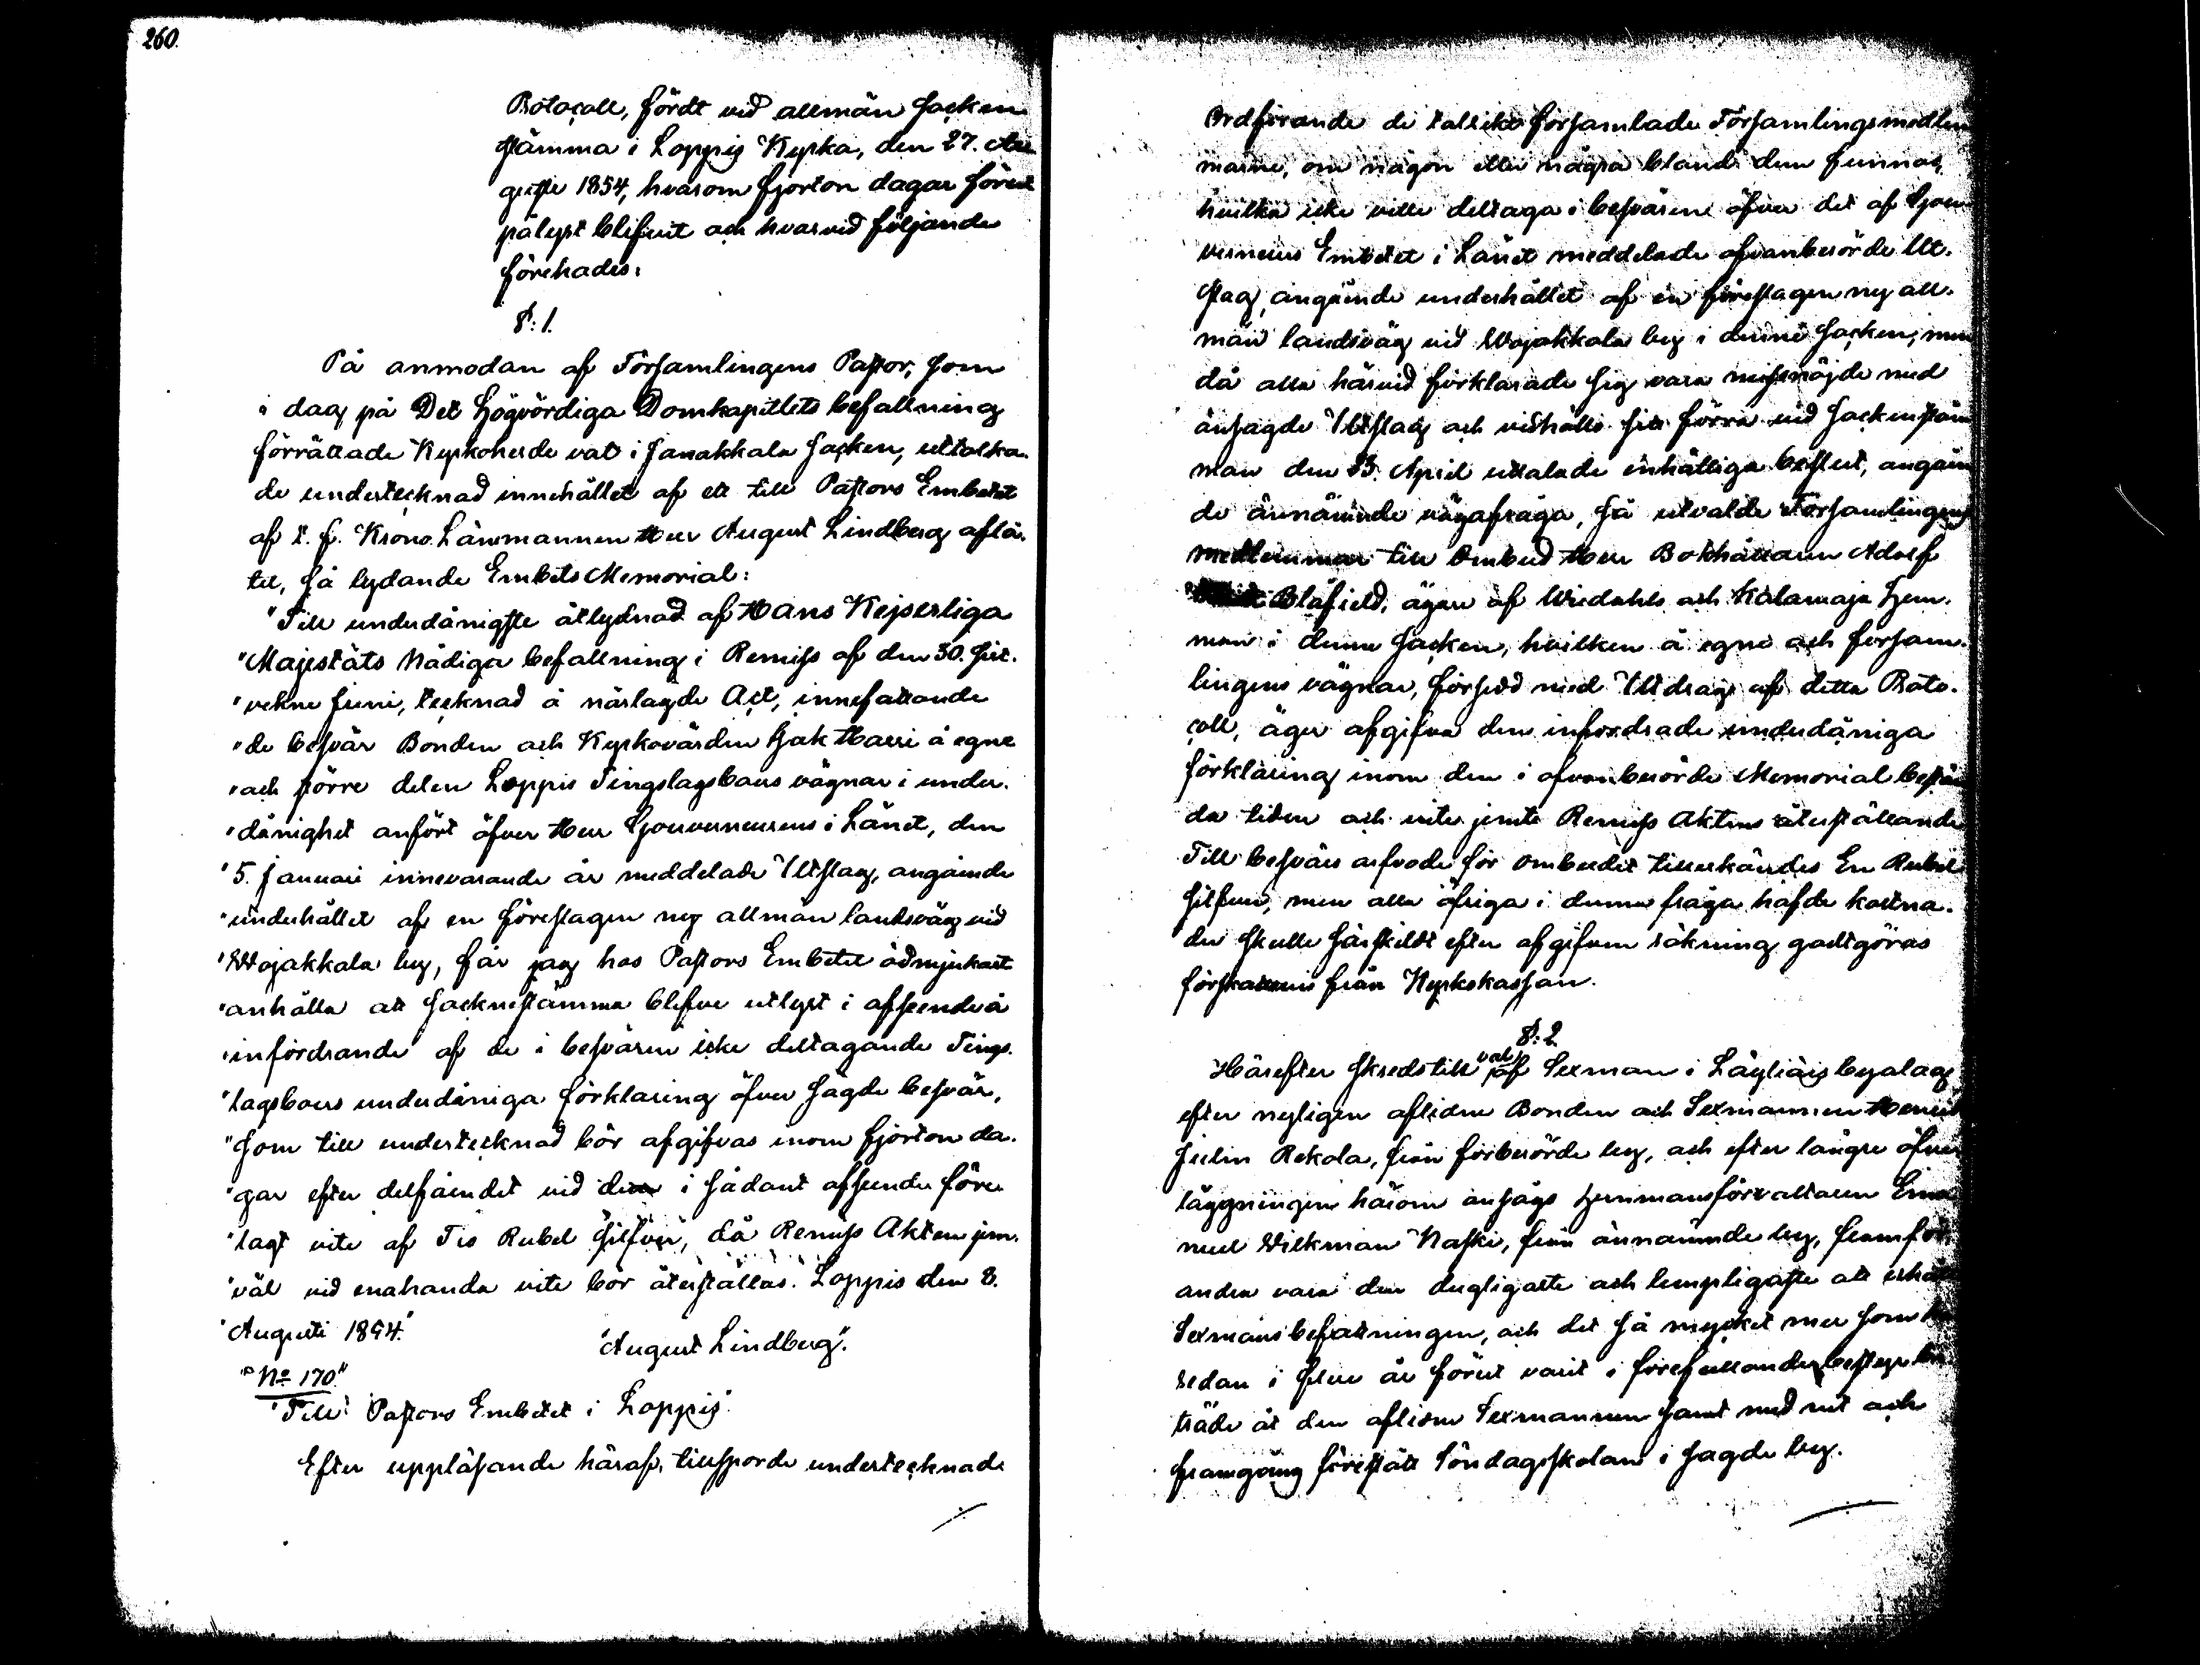 260.
Rotocoll, fördt vid allmän Socken
stämma i Loppis Kyrka, den 27. Au
gusti 1854, hvarom fjorton dagar förut
pålyst blifvit och hvarvid följande
förehades:
§: 1.
På anmodan af Församlingens Pastor, som
i dag på Det Högvördiga Domkapitlets befallning
förrättade Kyrkoherde val i Janakkala Socken, uttolka-
de undertecknad innehållet af ett till Pastors Embetet
af t. f. Krono Länsmannen Herr August Lindberg aflå-
tet, så lydande Embets Memorial:
"Till underdånigste åtlydnad af Hans Kejserliga
"Majestäts Nådiga befallning i Remiss af den 30. sist-
"vekne Juni, tecknad å närlagde Act, innefattande
"de besvär Bonden och Kyrkovärden Isak Harri å egne
"och större delen Loppis Tingslagsboers vägnar i under-
"dånighet anfört öfver Herr Gouverneurens i Länet, den
"5. Januari innevarande år meddelade Utslag, angående
"underhållet af en föreslagen ny allmän landsväg vid
"Wojakkala by, får jag hos Pastors Embetet ödmjukast
"anhålla att Sockenstämma blefve utlyst i afseende å
"infordrande af de i besvären icke deltagande Tings-
"lagsboers underdåniga förklaring öfver sagde besvär,
"som till undertecknad bör afgifvas inom fjorton da-
"gar efter delfåendet vid det i sådant afseende före-
"lagt vite af Tio Rubel Silfver, då Remiss Akten jem-
"väl vid enahanda vite bör återställas. Loppis den 8.
"Augusti 1854."
"August Lindberg".
"No 170."
"Till Pastors Embetet i Loppis".
Efter uppläsande häraf, tillsporde undertecknade
Ordförande de talrika församlade Församlingsmedlem
marne, om någon eller några bland dem funnos,
hvilka icke ville deltaga i besvären öfver det af Gou
verneurs Embetet i Länet meddelade ofvanberörde Ut-
slag, angående underhållet af en föreslagen ny all-
män landsväg vid Wojakkala by i denne Socken; men
då alla härvid förklarade sig vara missnöjde med
ansagde Utslag och vidhöllo sitt förra vid Sockenstäm
man den 23. April uttalade enhälliga beslut, angåen
de ännämnde vägafråga, så utvalde Församlingens
medlemmar till Ombud Herr Bokhållaren Adolf
Blåfield, ägare af Wredahls och Kalamaja Hem-
man i denne Socken, hvilken å egne och försam-
lingens vägnar, försedd med Utdrag af detta Roto-
coll, äger afgifva den infordrade underdåniga
förklaring inom den i ofvanberörde Memorial bestäm
da tiden och vite jemte Remiss Aktens återställande
Till besvärs arfvode för ombudet tillerkändes En Rubel
Silfver, men alla öfriga i denne fråga hafde kostna-
der skulle särskildt efter afgifven räkning godtgöras
förskottsvis från Kyrkokassan.
§: 2.
Härefter skreds till val af Sexman i Läyliäis byalag
efter nyligen aflidne Bonden och Sexmannen Henrik
Juelin Rekola, från förberörde by, och efter längre öfver
läggningen härom ansågs Hemmansförvaltaren Ema
nuel Wilkman Naski, från ännämnde by, framför
andra vara den dugligaste och lempligaste att erhål
Sexmans befattningen, och det så mycket mer som han
redan i flere år förut varit i förefallande bestyr bi-
träde åt den aflidne Sexmannen samt med nit och
framgång förestått Söndagsskolan i sagde by.